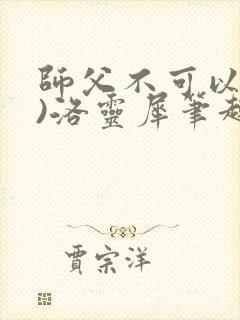 師父不可以
)洛靈犀筆趣
賈宗洋